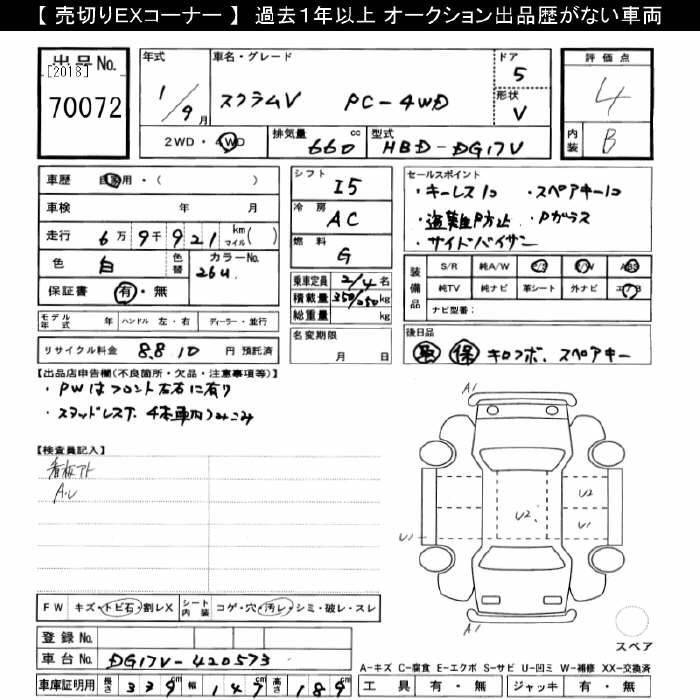 【 売切りEXコーナー 】 過去１年以上 オークション出品歴がない車両
出品No.
[2018]
70072
年式
1/9月
車名・グレード
スクラムV PC-4WD
ドア
5
形状
V
評価点
4
内装
B
2WD・4WD
排気量
660 cc
型式
HBD-DG17V
車歴 自家用・( )
車検 年 月
走行 6万9千921 km マイル( )
色 白 色替 カラーNo. 26U
保証書 有・無
シフト I5
冷房 AC
燃料 G
乗車定員 2/4名
積載量 350/250kg
総重量 kg
名変期限
月 日
セールスポイント
・キーレス1コ ・スペアキー1コ
・盗難防止 ・Pガラス
・サイドバイザー
装備品
S/R 純A/W P/S P/W ABS
純TV 純ナビ 革シート 外ナビ エアB
ナビ型番:
モデル年式 年 ハンドル 左・右 ディーラー・並行
リサイクル料金 8,810 円 預託済
後日品
取 保 キロクボ、スペアキー
【出品店申告欄(不良箇所・欠品・注意事項等)】
・PWはフロント左右に有り
・スタッドレスT. 4本車内つみこみ
【検査員記入】
看板アト
A.U
A1
U2
U2.
U1
U1
A1
スペア
FW キズ・トビ石・割レX シート内装 コゲ・穴・汚レ・シミ・破レ・スレ
登録No.
車台No. DG17V-420573
A-キズ C-腐食 E-エクボ S-サビ U-凹ミ W-補修 XX-交換済
車庫証明用 長さ 339cm 幅 147cm 高さ 189cm
工具 有・無 ジャッキ 有・無